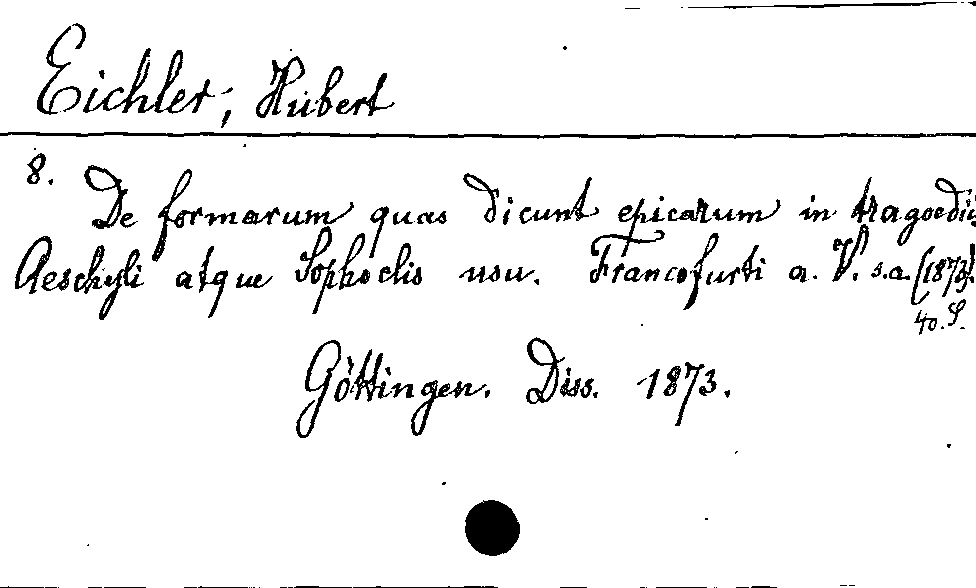 Eichler, Hubert
8. De formarum quas dicunt epicarum in tragoediis
Aeschyli atque Sophoclis usu. Francofurti a. V. s.a. (1873).
40. S.
Göttingen. Diss. 1873.